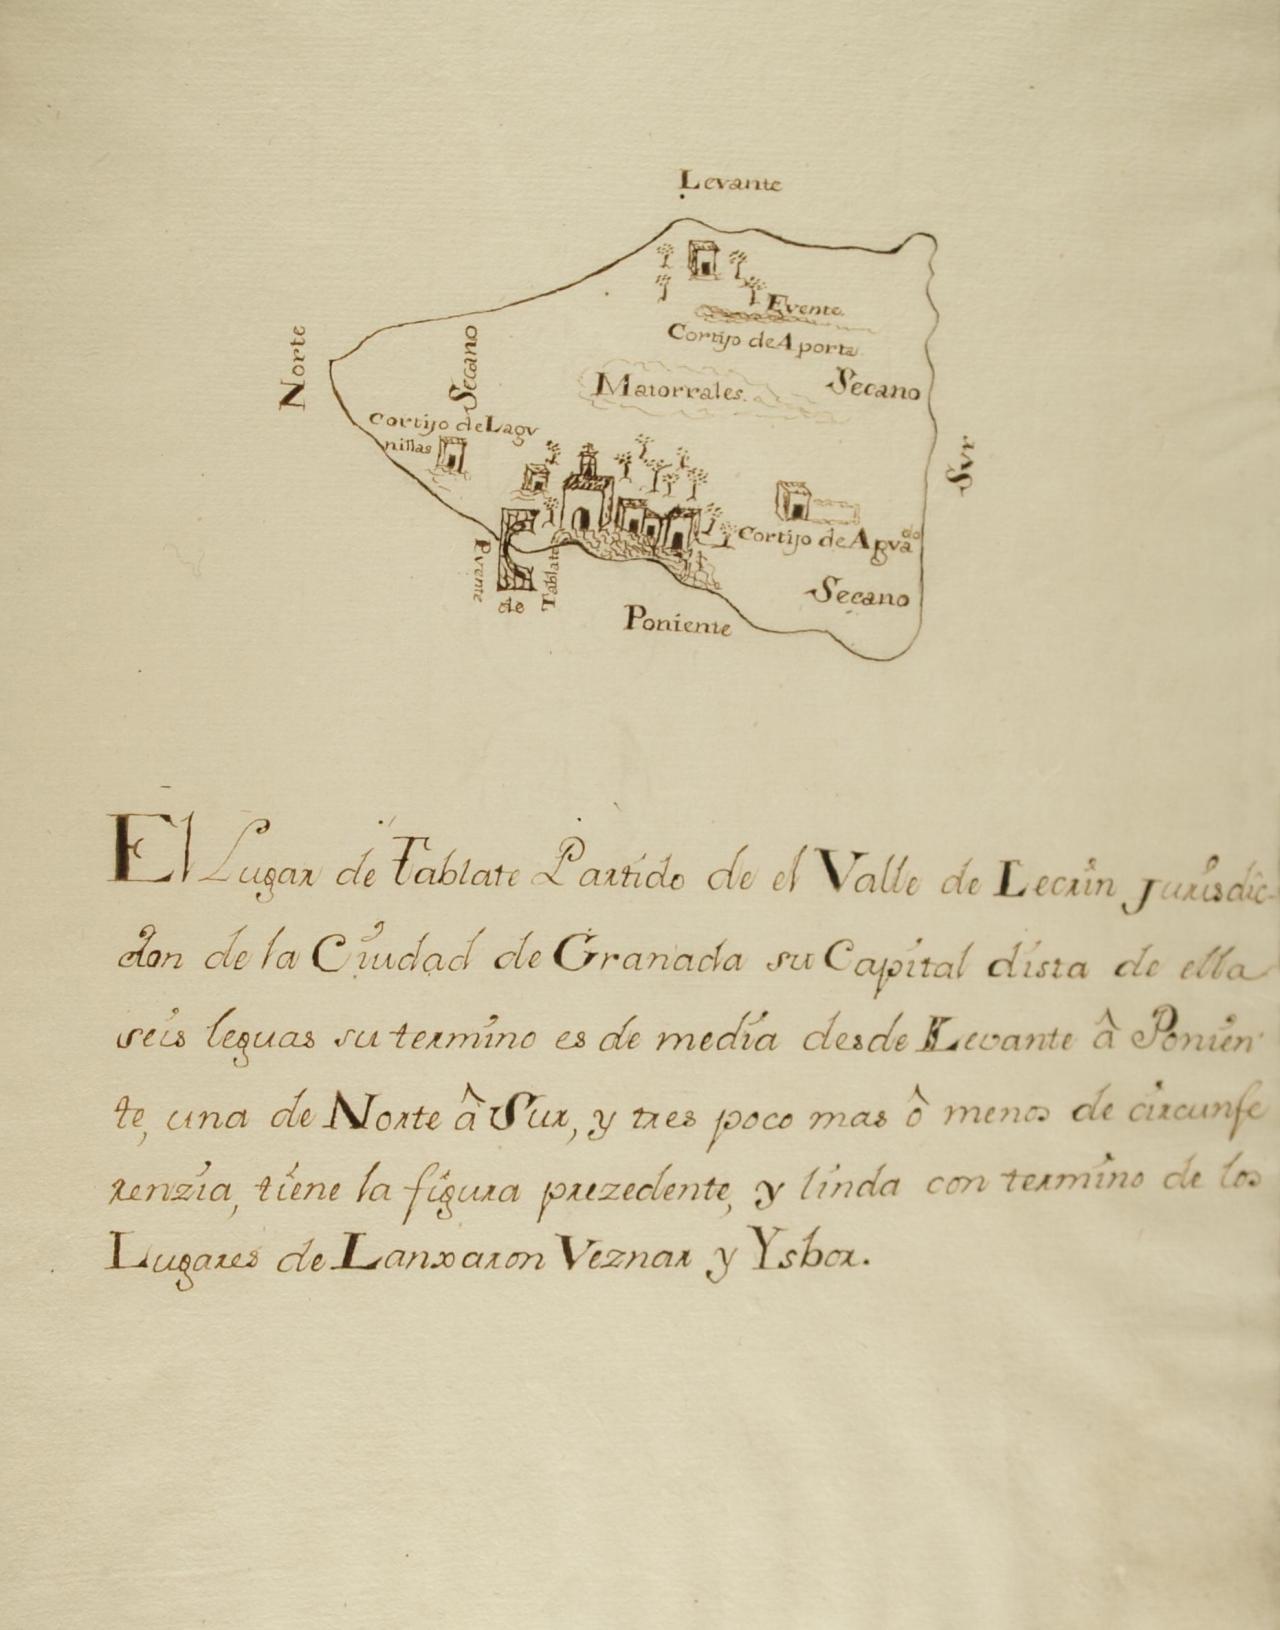 Levante
Norte
Secano
Fvente.
Cortijo de Aporta
Matorrales.
Secano
Cortijo de Lagv
nillas
Svr
Cortijo de Agvado
Pvente
de
Tablate
Secano
Poniente
El Lugar de Tablate Partido de el Valle de Lecrin Jurisdic-
cion de la Ciudad de Granada su Capital dista de ella
seis leguas su termino es de media desde Levante â Ponien
te, una de Norte â Sur, y tres poco mas ô menos de circunfe
renzia, tiene la figura prezedente, y linda con termino de los
Lugares de Lanxaron Veznar y Ysbor.